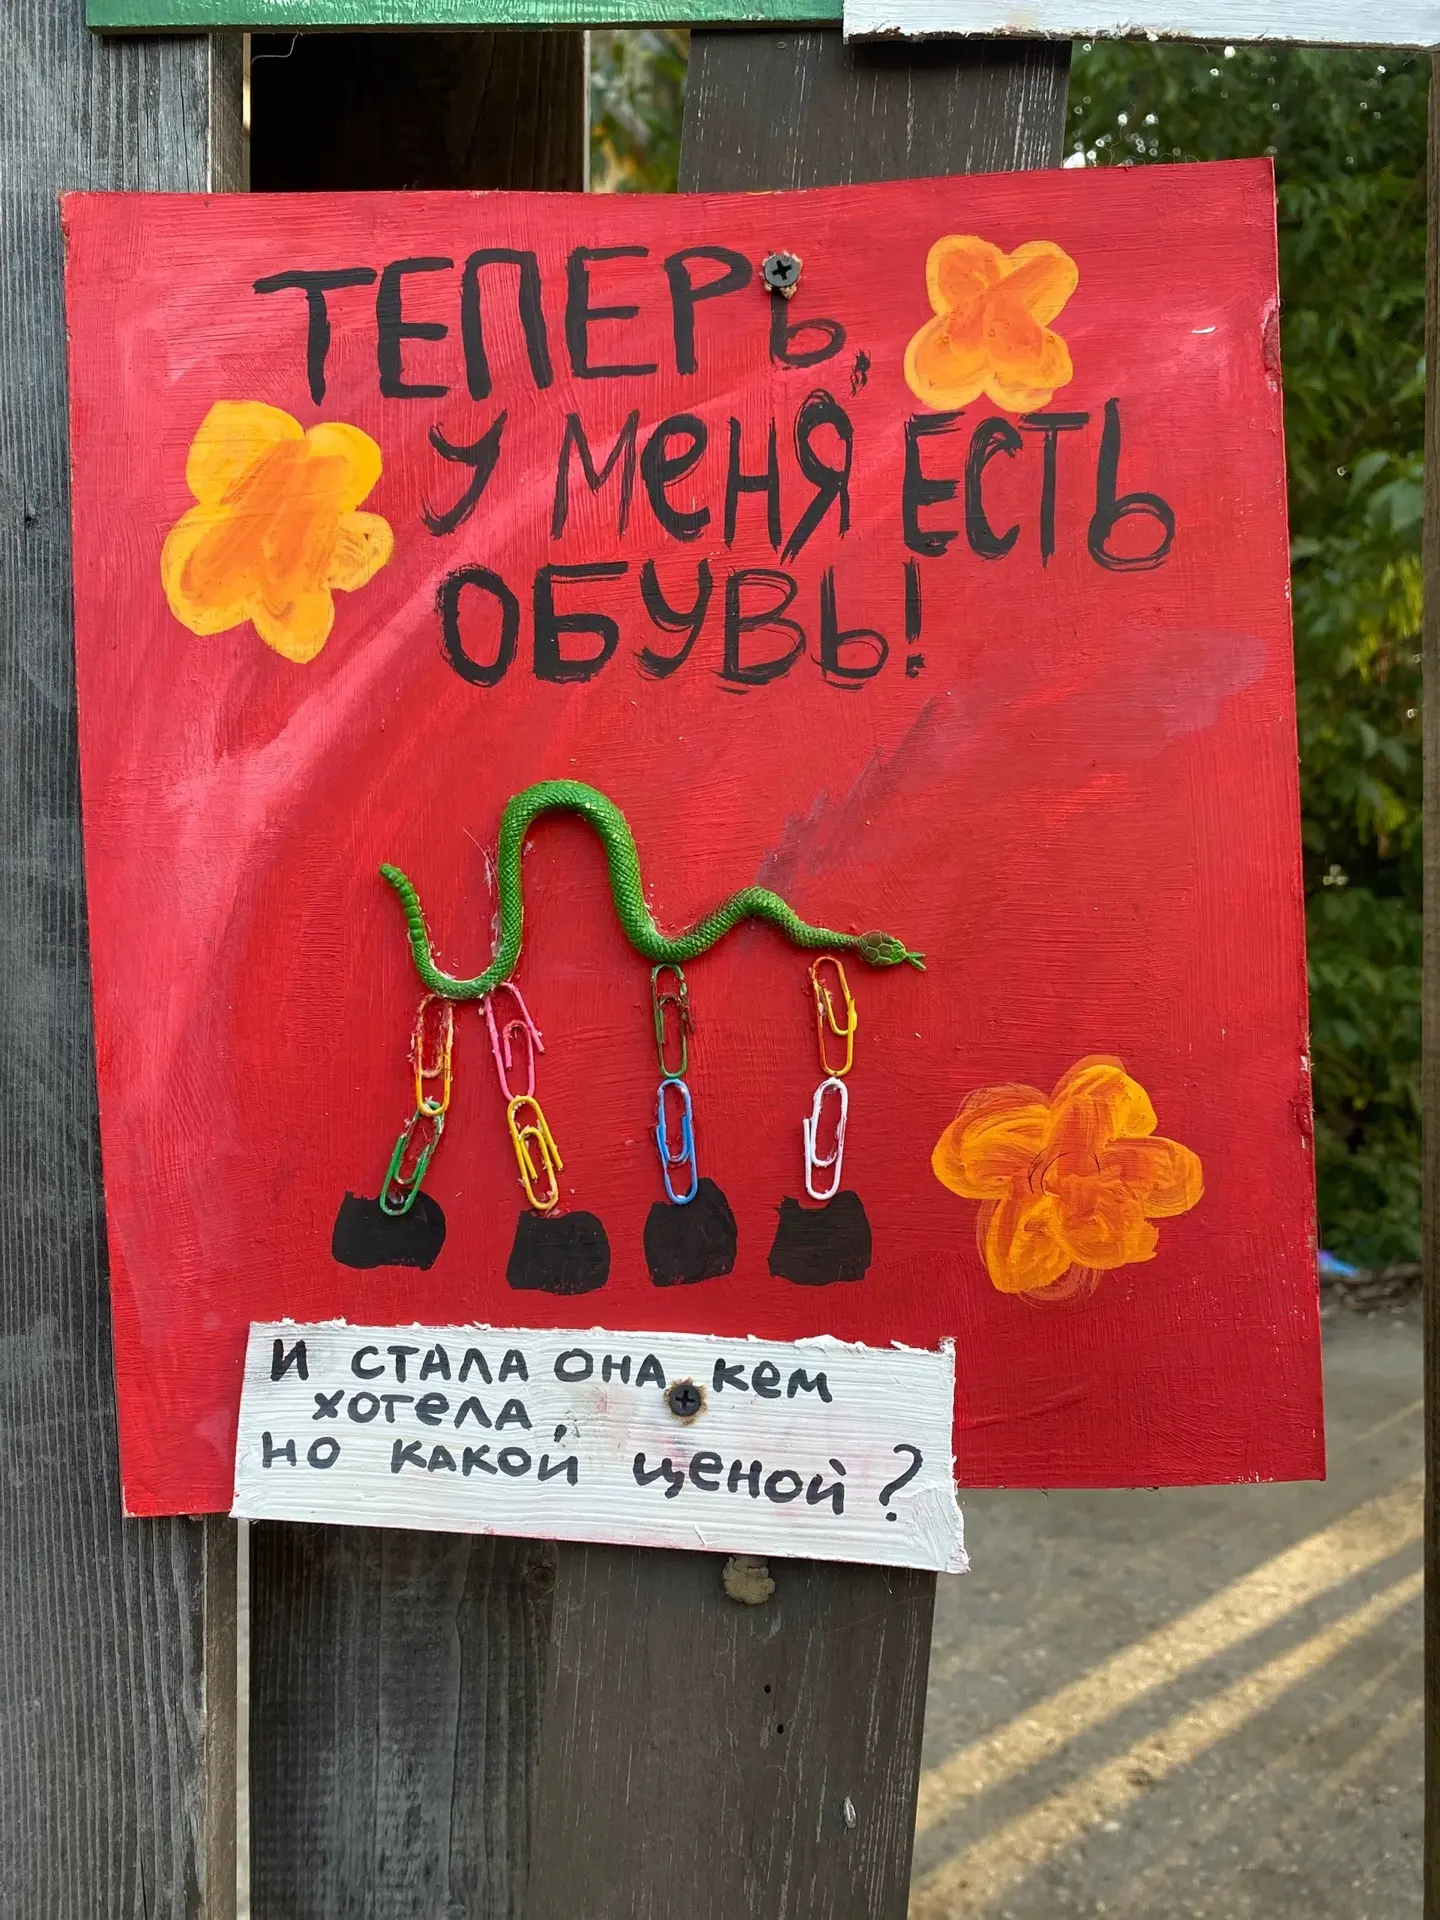 ТЕПЕРЬ,
У МеНЯ ЕСТЬ
ОБУВЬ!
И СТАЛА ОНА, кем
хотела,
но какой ценой?